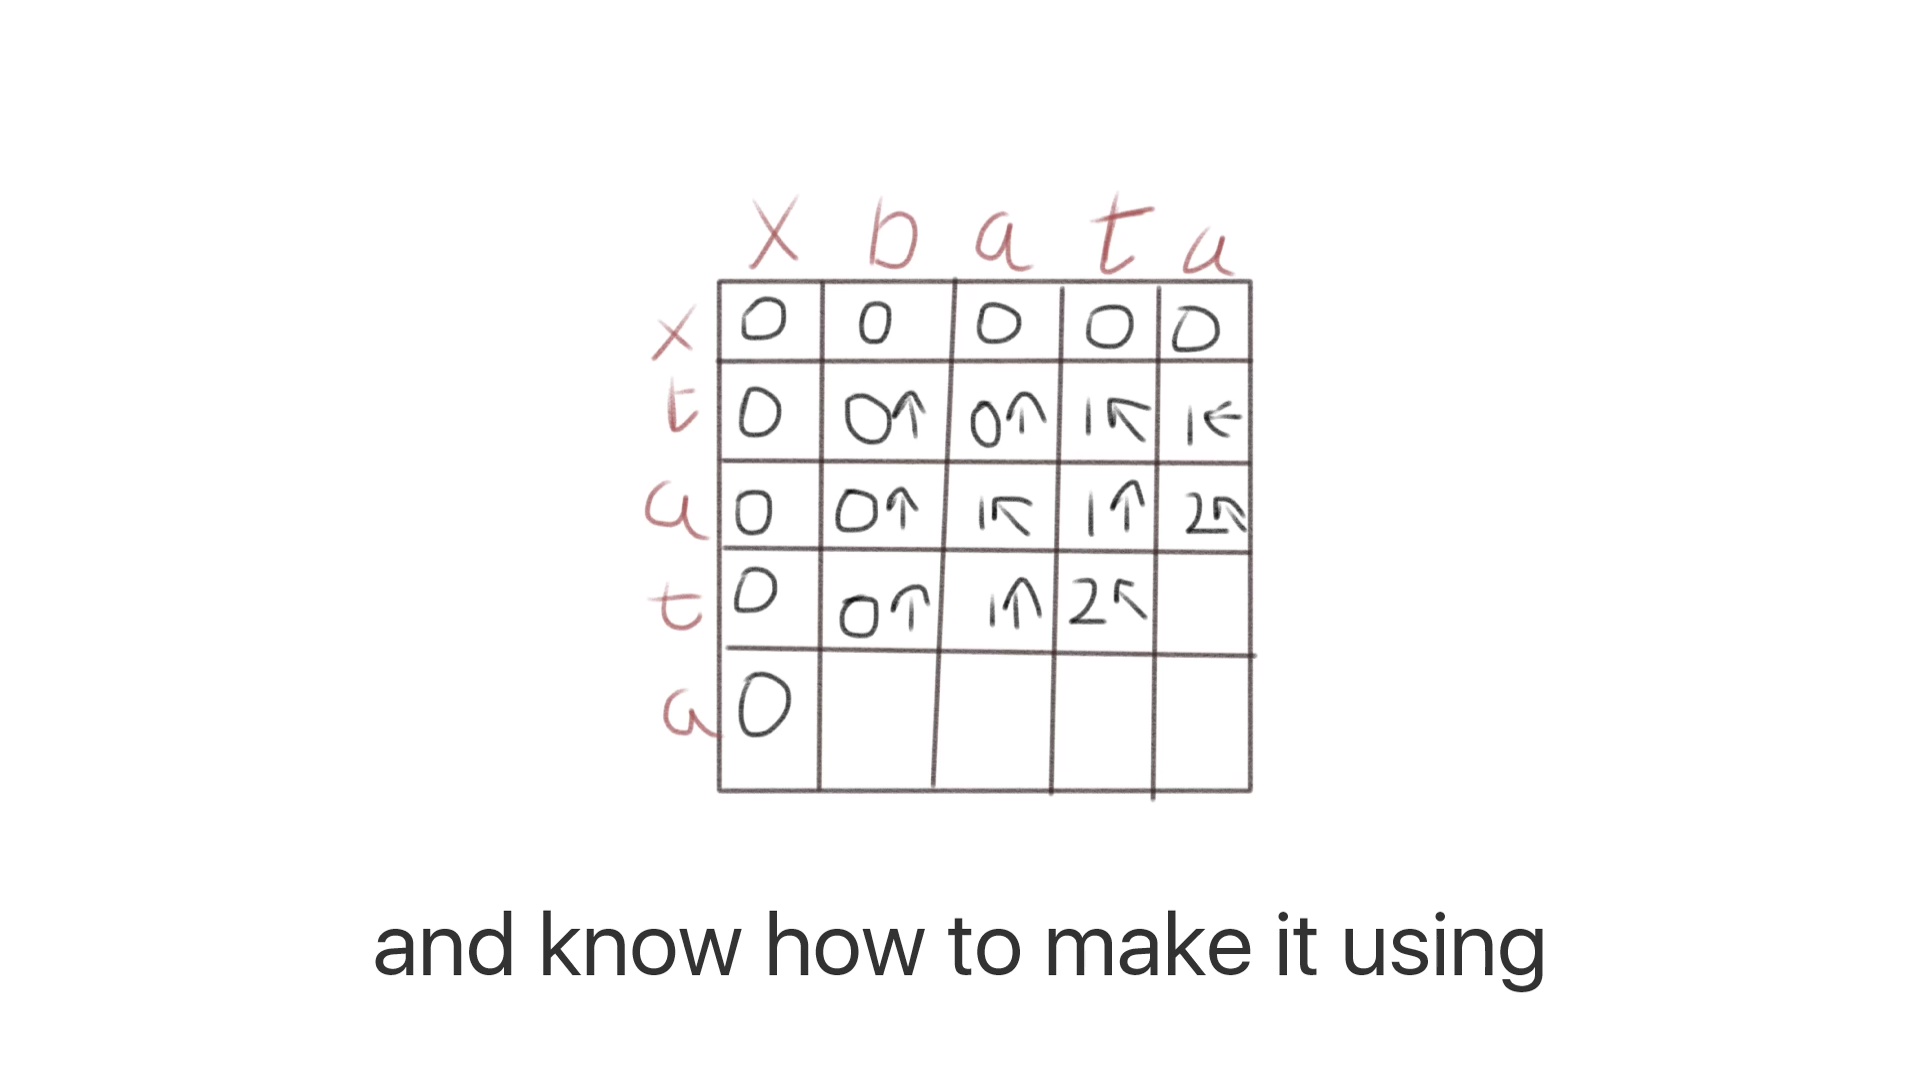 x b a t a
x 0 0 0 0 0
t 0 0↑ 0↑ 1↖ 1←
a 0 0↑ 1↖ 1↑ 2↖
t 0 0↑ 1↑ 2↖
a 0
and know how to make it using